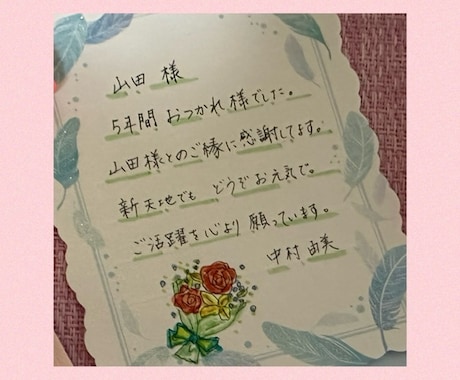 山田 様
5年間 おつかれ様でした。
山田様とのご縁に感謝してます。
新天地でも どうぞお元気で。
ご活躍を心より 願っています。
中村由美